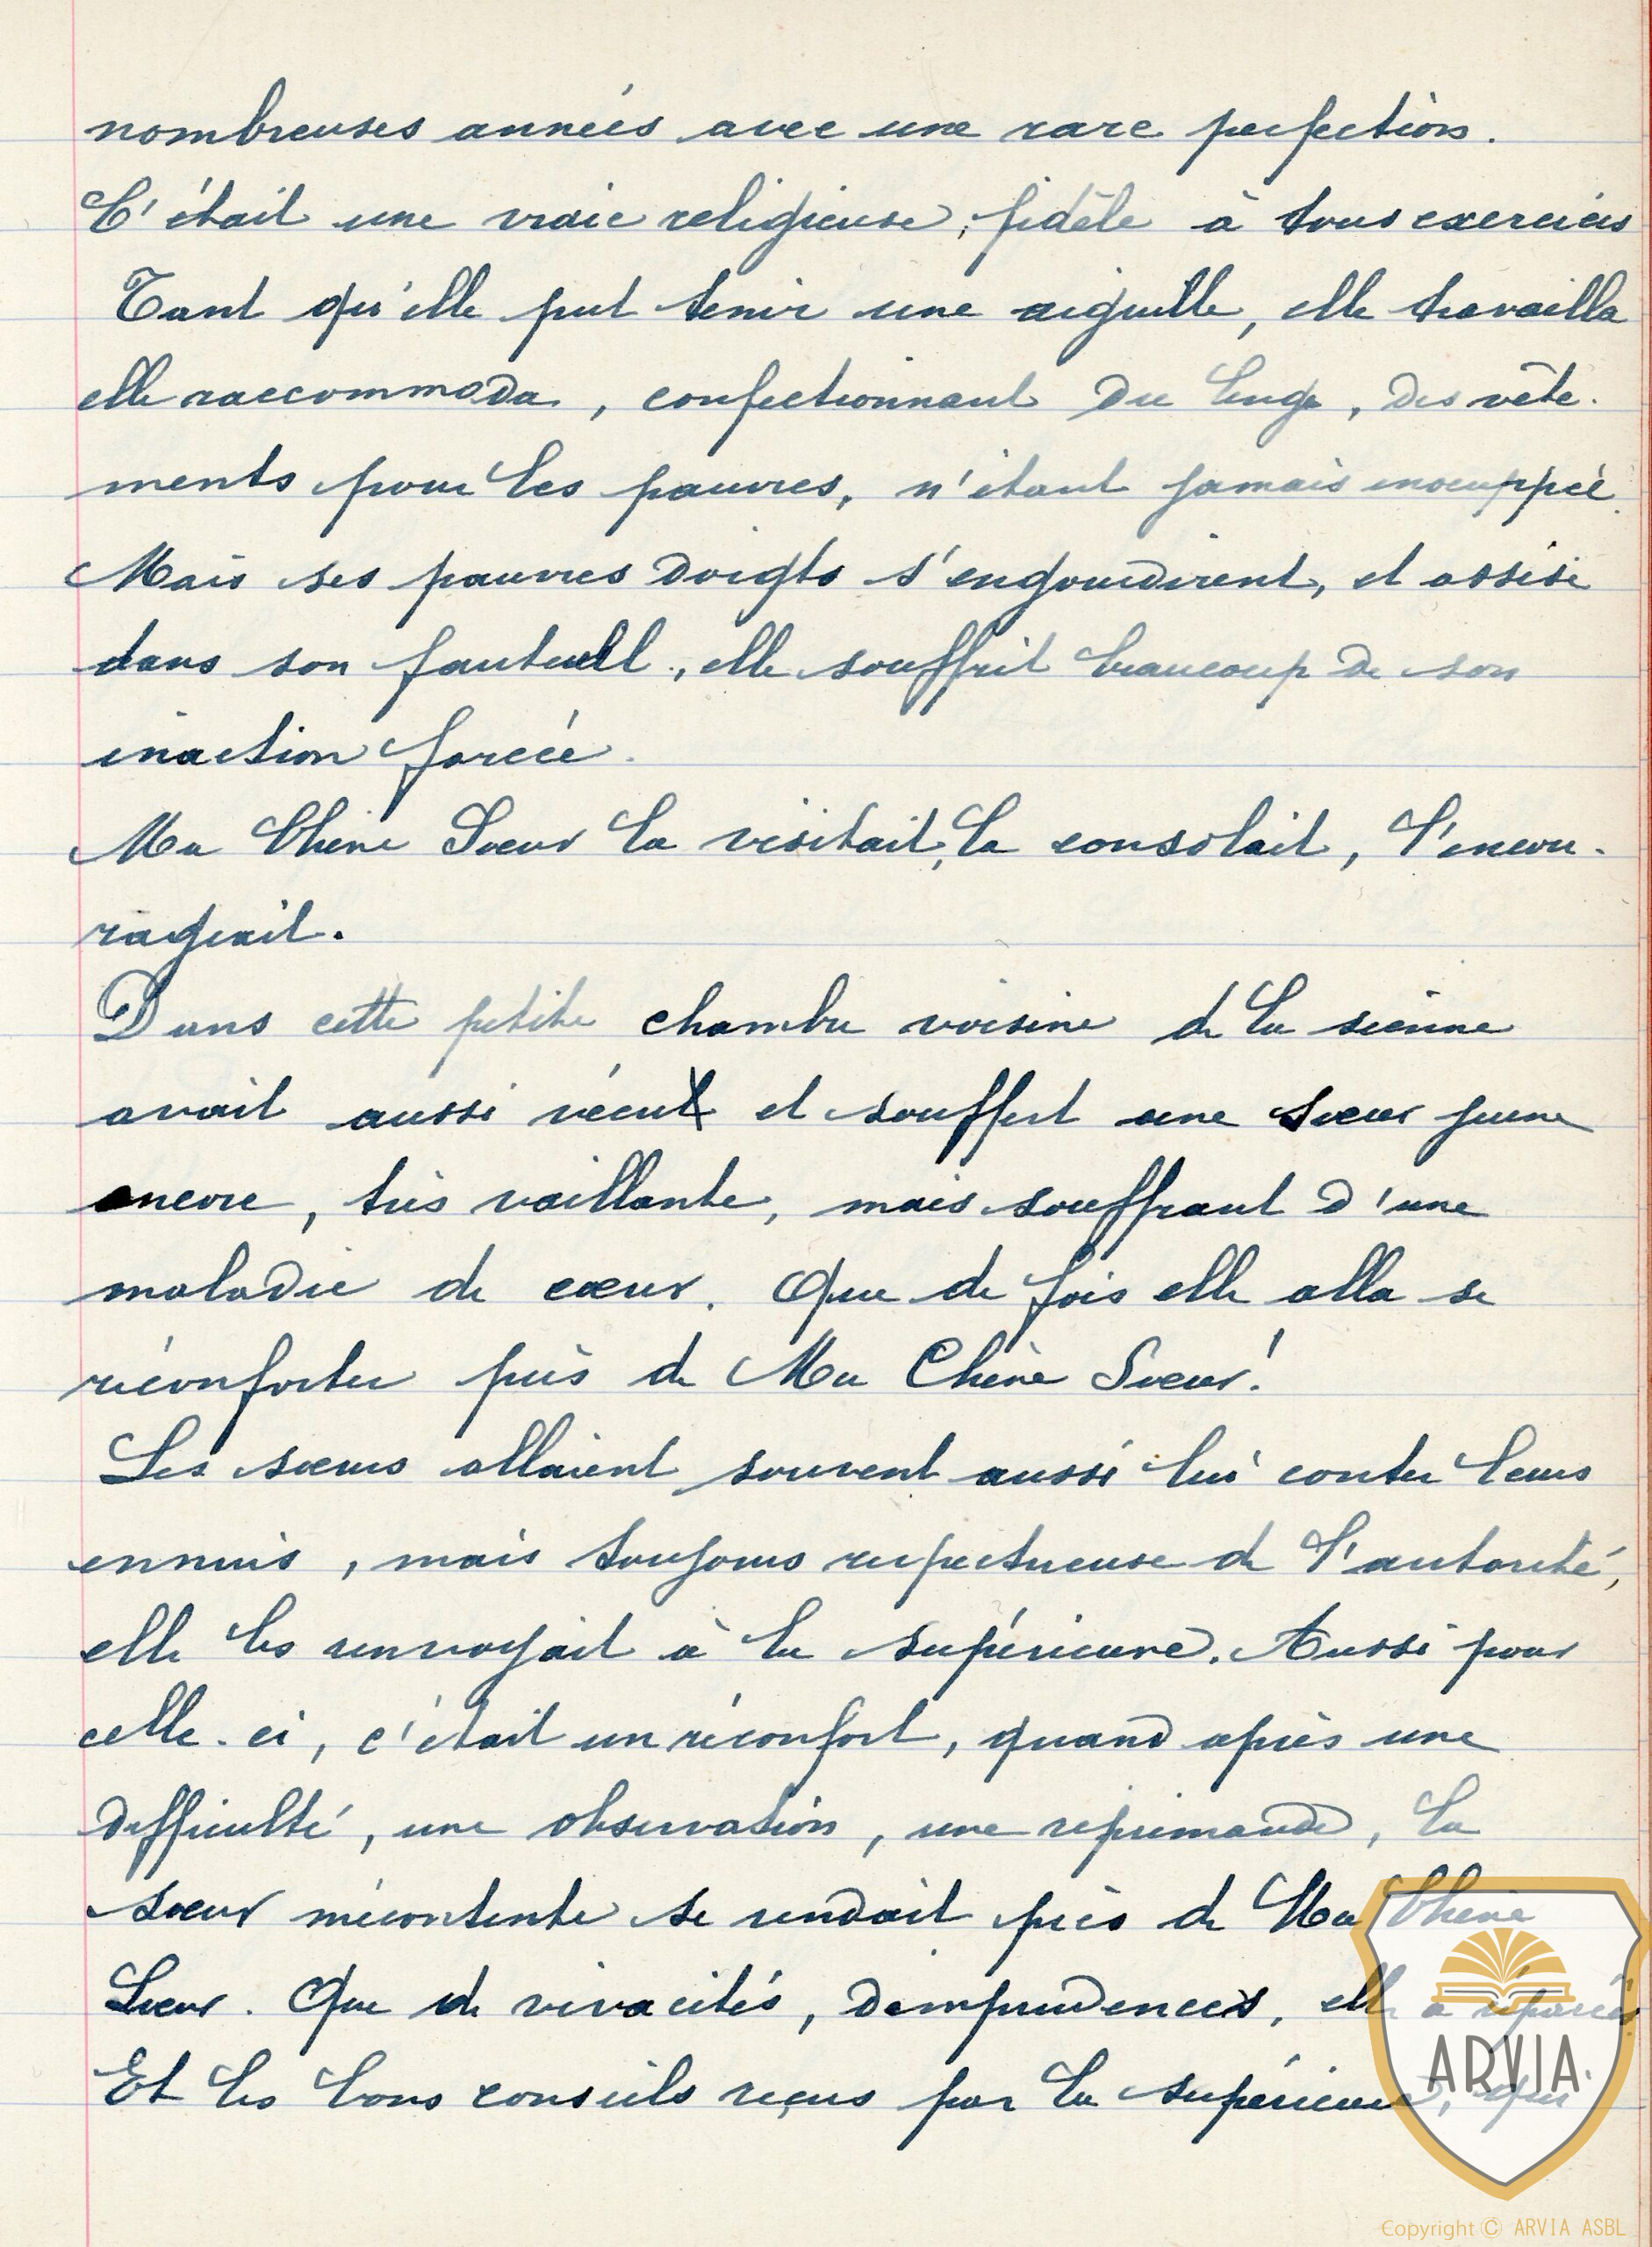 nombreuses années avec une rare perfection.
C'était une vraie religieuse, fidèle à tous exercices
Tant qu'elle put tenir une aiguille, elle travailla
elle raccommoda, confectionnant du linge, des vête-
ments pour les pauvres, n'étant jamais inocuppée.
Mais ses pauvres doigts s'engourdirent, et assise
dans son fauteuil, elle souffrit beaucoup de son
inaction forcée.
Ma Chère Soeur la visitait, la consolait, l'encou-
rageait.
Dans cette petite chambre voisine de la sienne
avait aussi vécu et souffert une soeur jeune
encore, très vaillante, mais souffrant d'une
maladie de coeur. Que de fois elle alla se
réconforter près de Ma Chère Soeur!
Les soeurs allaient souvent aussi lui conter leurs
ennuis, mais toujours respectueuse de l'autorité,
elle les renvoyait à la supérieure. Aussi pour
celle-ci, c'était un réconfort, quand après une
difficulté, une observation, une réprimande, la
soeur mécontente se rendait près de Ma Chère
Soeur. Que de vivacités, d'imprudences, elle a réparées
Et les bons conseils reçus par la supérieure, qui
ARVIA
Copyright © ARVIA ASBL